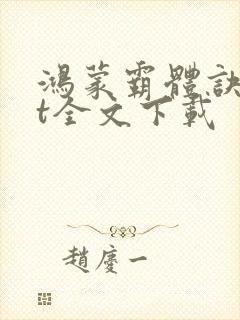 鴻蒙霸體訣
t全文下載
趙慶一